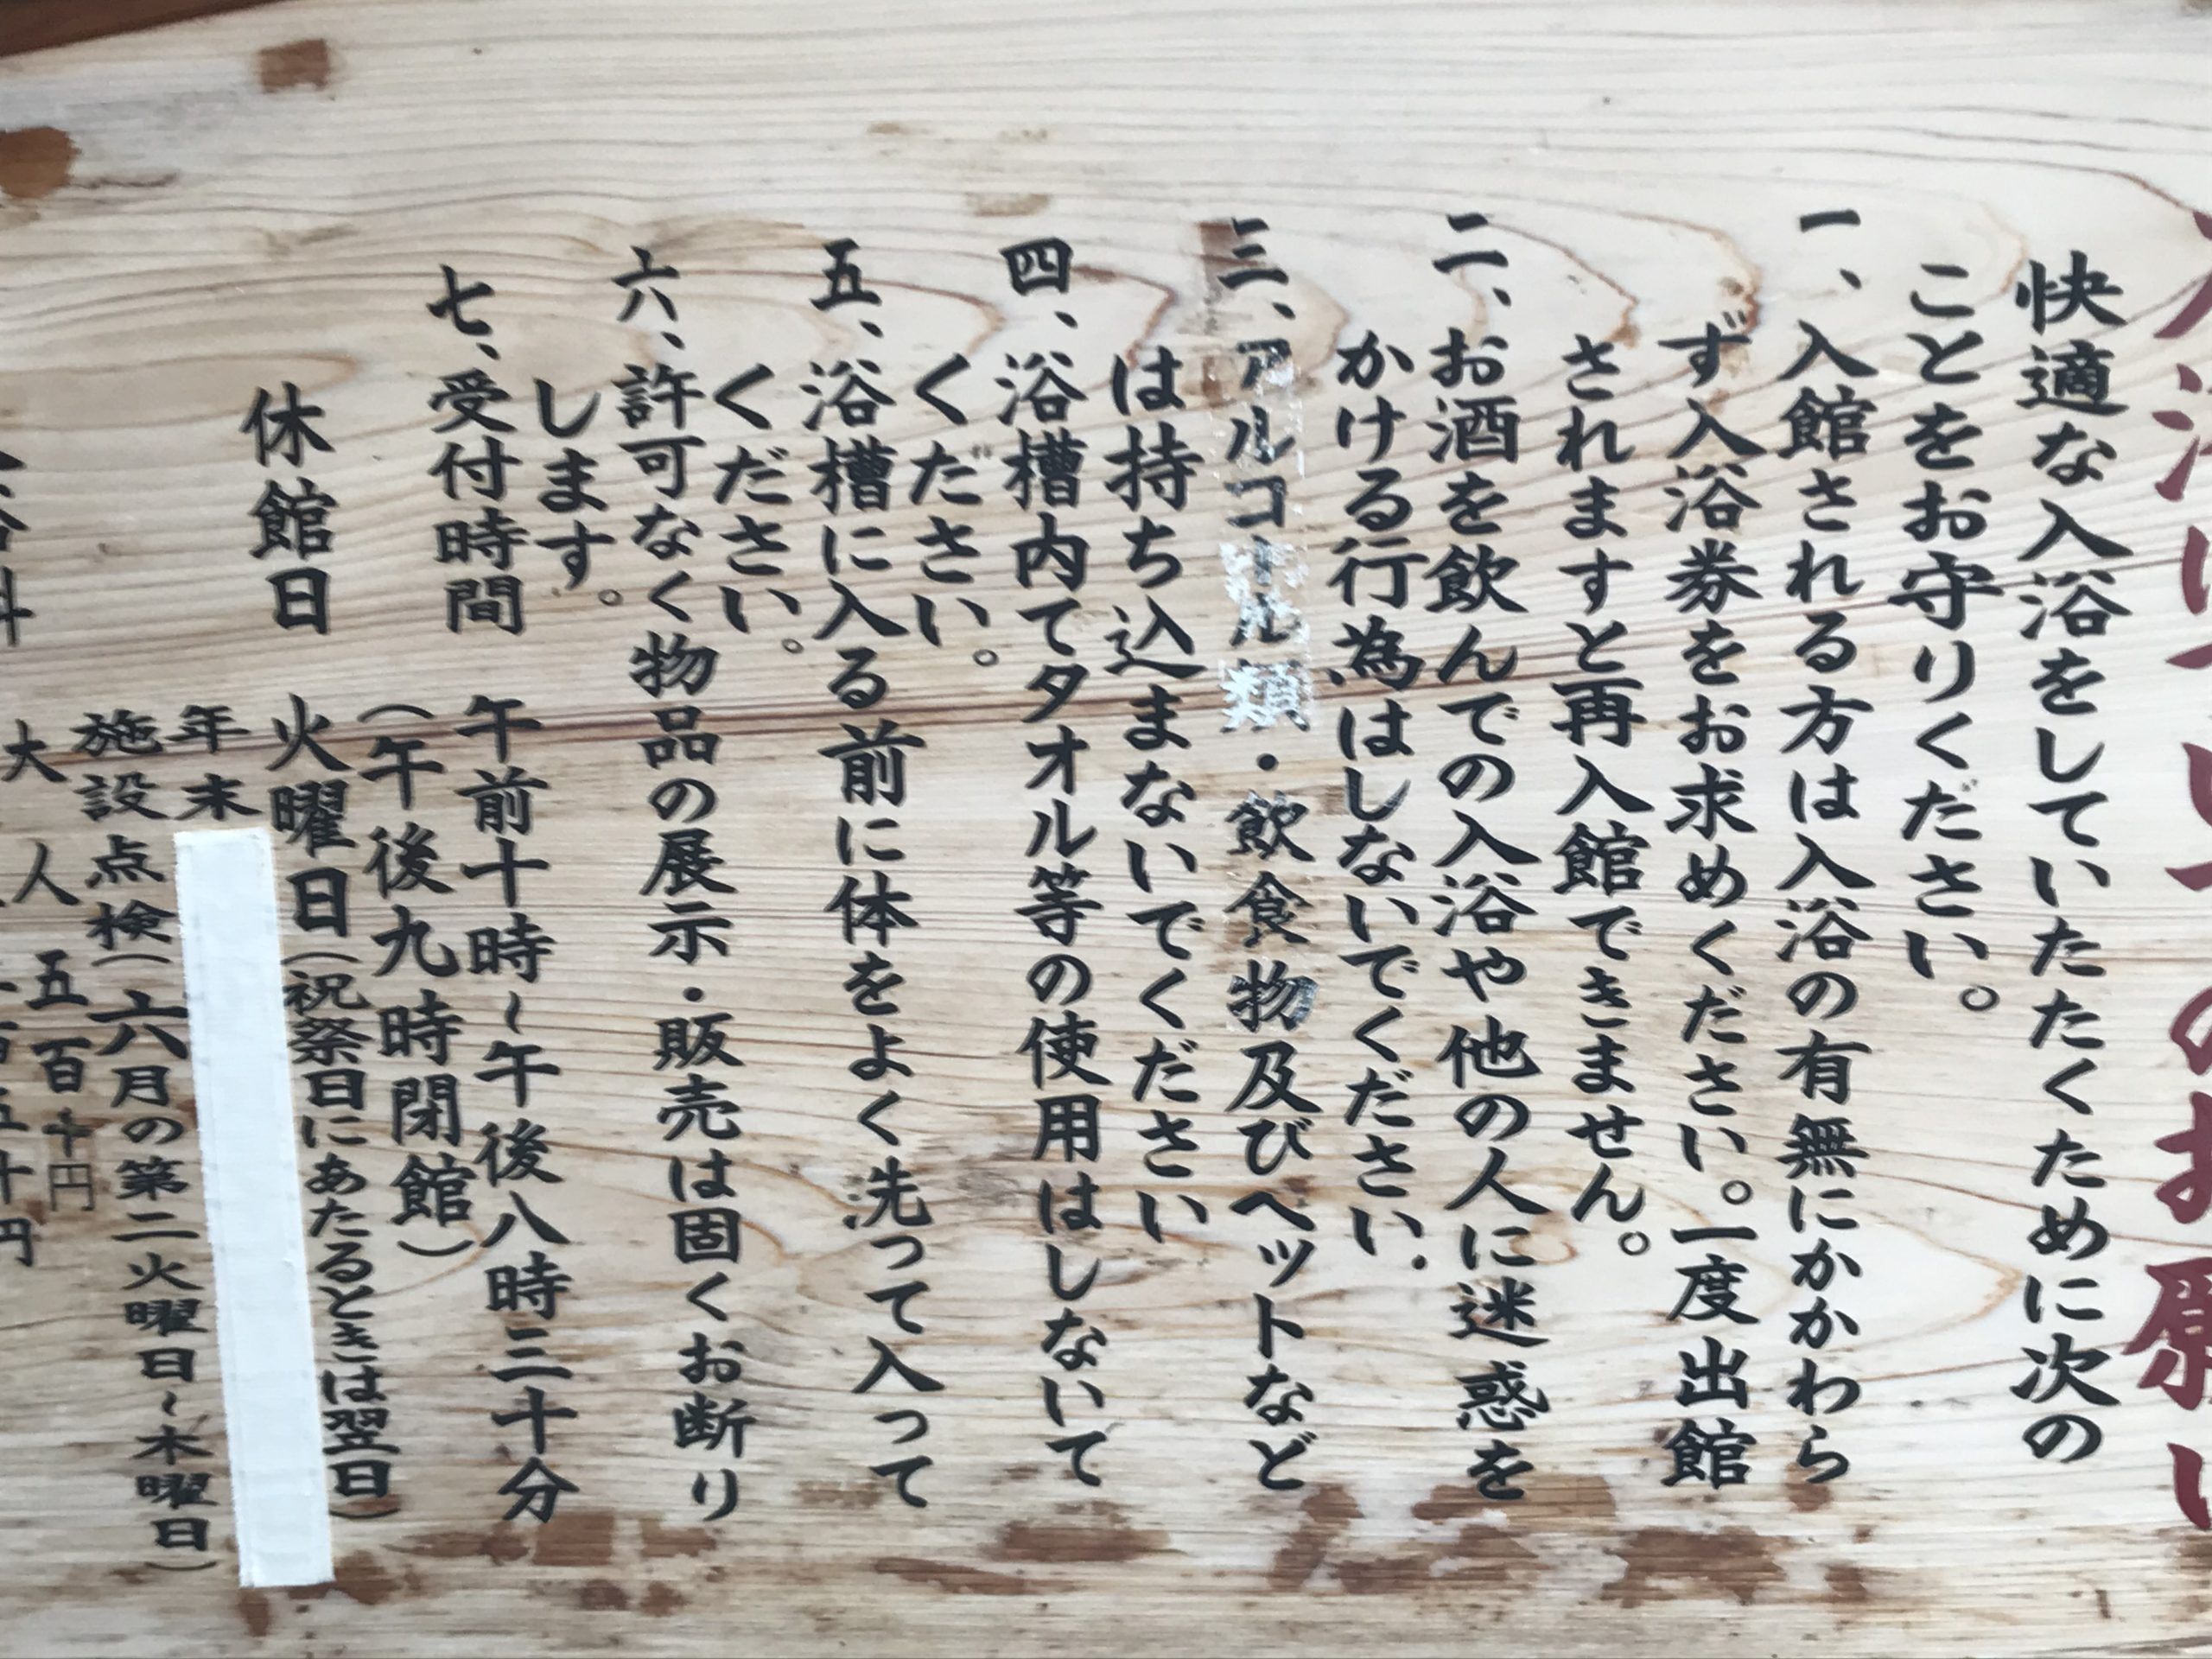 いてのお願い
快適な入浴をしていたたくために次の
ことをお守りください。
一、入館される方は入浴の有無にかかわら
ず入浴券をお求めください。一度出館
されますと再入館できません。
二、お酒を飲んでの入浴や他の人に迷惑を
かける行為はしないでください.
三、アルコール類・飲食物及びペットなど
は持ち込まないでください
四、浴槽内てタオル等の使用はしないて
ください。
五、浴槽に入る前に体をよく洗って入って
ください。
六、許可なく物品の展示・販売は固くお断り
します。
七、受付時間 午前十時~午後八時三十分
(午後九時閉館)
休館日 火曜日(祝祭日にあたるときは翌日)
年末
施設点検(六月の第二火曜日~木曜日)
大人 五百円